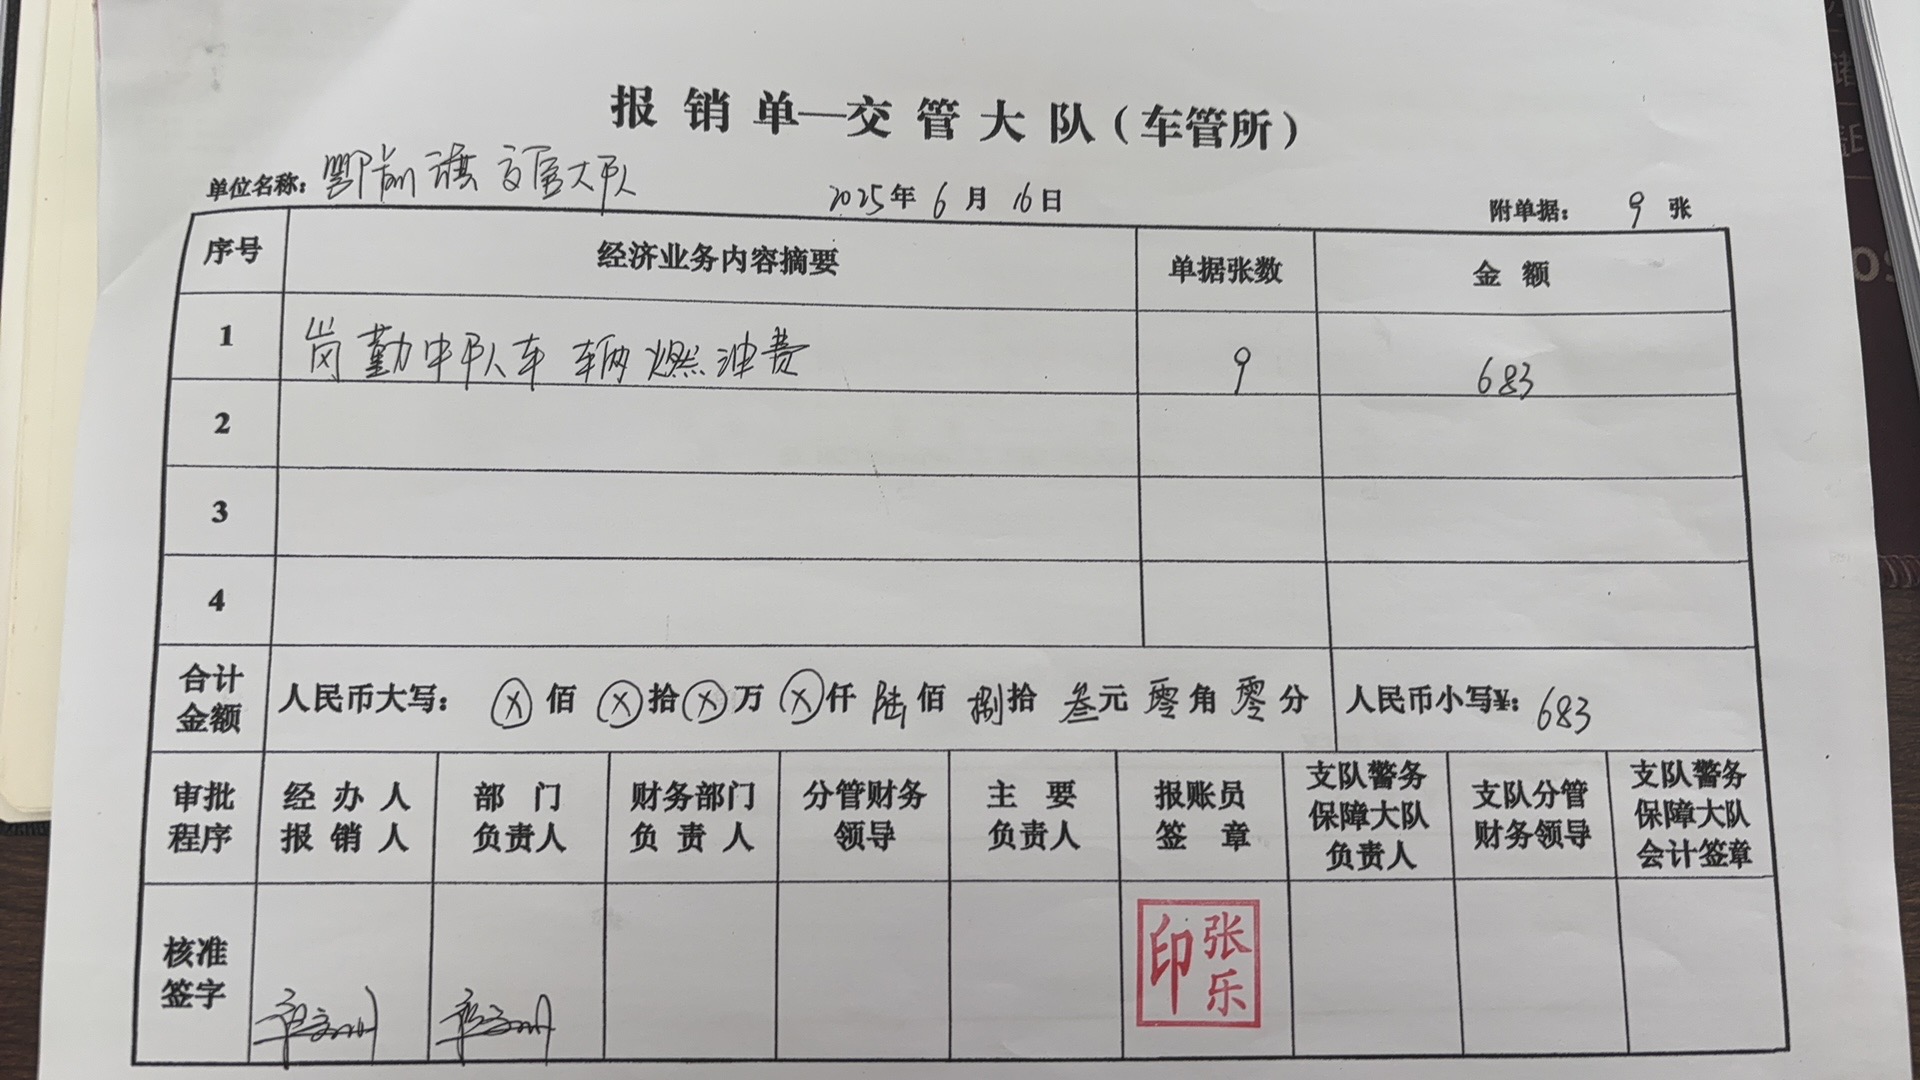 报销单—交管大队（车管所）
单位名称：鄂前旗交管大队 2025年6月16日 附单据：9张
序号 经济业务内容摘要 单据张数 金额
1 岗勤中队车辆燃油费 9 683
2
3
4
合计金额 人民币大写：ⓧ佰ⓧ拾ⓧ万ⓧ仟陆佰捌拾叁元零角零分 人民币小写¥：683
审批程序 经办人报销人 部门负责人 财务部门负责人 分管财务领导 主要负责人 报账员签章 支队警务保障大队负责人 支队分管财务领导 支队警务保障大队会计签章
核准签字 张乐印